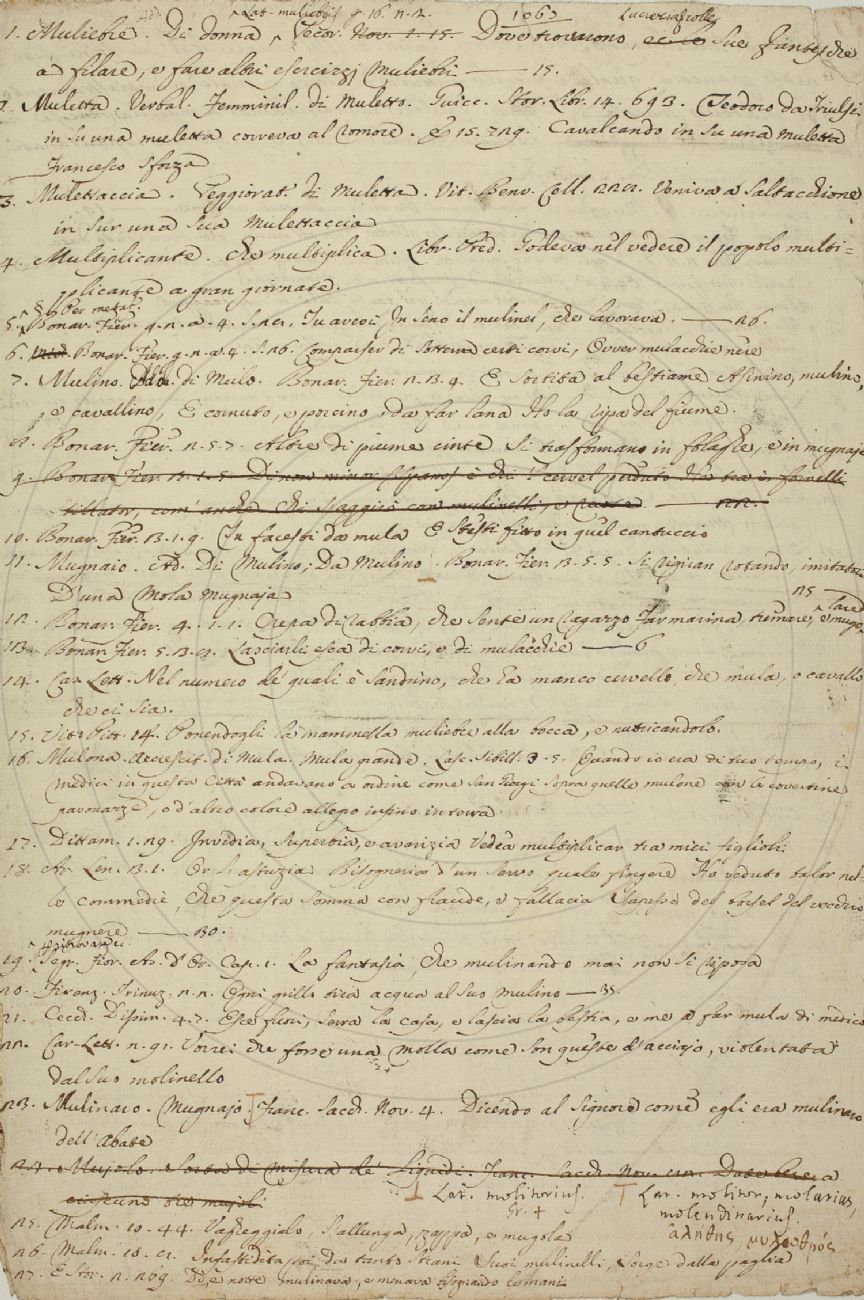 Lat. muliebris 4. 16. n. 2. 1063
1. Muliebre. Di donna, Pecor. Nov. 1. 15. Dove trovarono, sue fantesche
a filare, e fare altri esercizzj Muliebri — 15.
2. Muletta. Verbal. Femminil. di Muletto. Guicc. Stor. Libr. 14. 693. Teodoro da Triulsi
in su una muletta correva al romore. E 15. 729. Cavalcando in su una Muletta
Francesco Sforza
3. Mulettaccia. Peggiorat. di Muletta. Vit. Benv. Cell. Veniva a saltacchione
in sur una sua Mulettaccia
4. Multiplicante. Che multiplica. Libr. Pred. Godeva nel vedere il popolo multi=
plicante a gran giornate.
Per metaf.
5. Bonar. Fier. 4. 2. a. 4. Tu avevi In seno il mulinel, che lavorava. — 26.
6. Bonar. Fier. 4. 2. a. 4. S. 26. Comparser di sotterra certi corvi, Ovver mulacchie nere
7. Mulino. Add. di Mulo. Bonar. Fier. 2. 3. 4. E sortita al bestiame Asinino, mulino,
e cavallino, E cornuto, e porcino, e da far lana Ho la ripa del fiume.
8. Bonar. Fier. 2. 5. 7. Altre di piume cinte Si trasformano in folaghe, e in mugnaje
9. Bonar. Fier. 3. 1. 5. Di non minor è chi 'l cervel perduto Ha tra i fornelli
tillato, com' anche chi con mulinelli, e ruote — 22.
10. Bonar. Fier. 3. 1. 9. Tu facesti da mula E stesti fitto in quel cantuccio
11. Mugnaio. Ad. Di Mulino; Da Mulino. Bonar. Fier. 3. 5. 5. Si rigiran rotando, imitator
D'una Mola Mugnaja
25 lare
12. Bonar. Fier. 4. 1. 1. Crepa di rabbia, che sente un ragazzo Far marina, tremare, e mugo
13. Bonar. Fier. 5. 3. Lasciarli esca di corvi, e di mulacchie — 6
14. Car. Lett. Nel numero de' quali è Sandrino, che ha manco cervello, che mula, o cavallo
che ci sia.
15. Vit. Pitt. 14. Ponendogli la mammella muliebre alla bocca, e nutricandolo.
16. Mulona. Accrescit. di Mula. Mula grande. Lasc. Sibill. 3. 5. Quando io era di tuo tempo, i
medici in questa Città andavano a ordine come San Giorgi sopra quelle mulone con le covertine
pavonazze, o d'altro colore allegro infino in terra
17. Dittam. 1. 29. Invidia, superbia, e avarizia Vedea multiplicar tra miei figlioli
18. Ar. Len. 3. 1. Or l'astuzia Bisogneria d'un servo quale fingere Ho veduto talor nel=
le commedie, che questa somma con fraude, e fallacia Sapesse del borsel del vecchio
mugnere — 30.
19. Segr. Fior. As. d'Or. Cap. 1. La fantasia, che mulinando mai non si riposa
20. Firenz. Trinuz. 2. 2. Ogni grillo tira acqua al suo mulino — 35.
21. Cecch. Dissim. 4. 7. Esce fuori, serra la casa, e lascia la bestia, e me a far mula di medico
22. Car. Lett. 2. 91. Vorrei che fosse una molla come son queste d'acciajo, violentata
dal suo molinello
23. Mulinaro. Mugnajo. Franc. Sacch. Nov. 4. Dicendo al Signore come egli era mulinaro
dell' Abate
24. Mujolo. Sorta di Misura de' Liquidi. Franc. Sacch. Nov.
Lat. molitorius. Lat. molitor, molarius,
Gr. + molendinarius.
25. Malm. 10. 44. Vagheggialo, s'allunga, zappa, e mugola
ἀλήτης μυλωθρός
26. Malm. 10. Infastidita poi da tanto strani Suoi mulinelli, sorge dalla paglia
27. E Stor. 2. 269. Dì, e notte mulinava, e menava